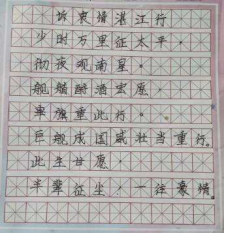 诉衷情湛江行
少时万里征太平，
彻夜观南星。
舰艏酹酒宏愿，
率旗重此行。
巨舰成国威壮当重行。
此生甘愿，
半辈征尘，一往豪情。